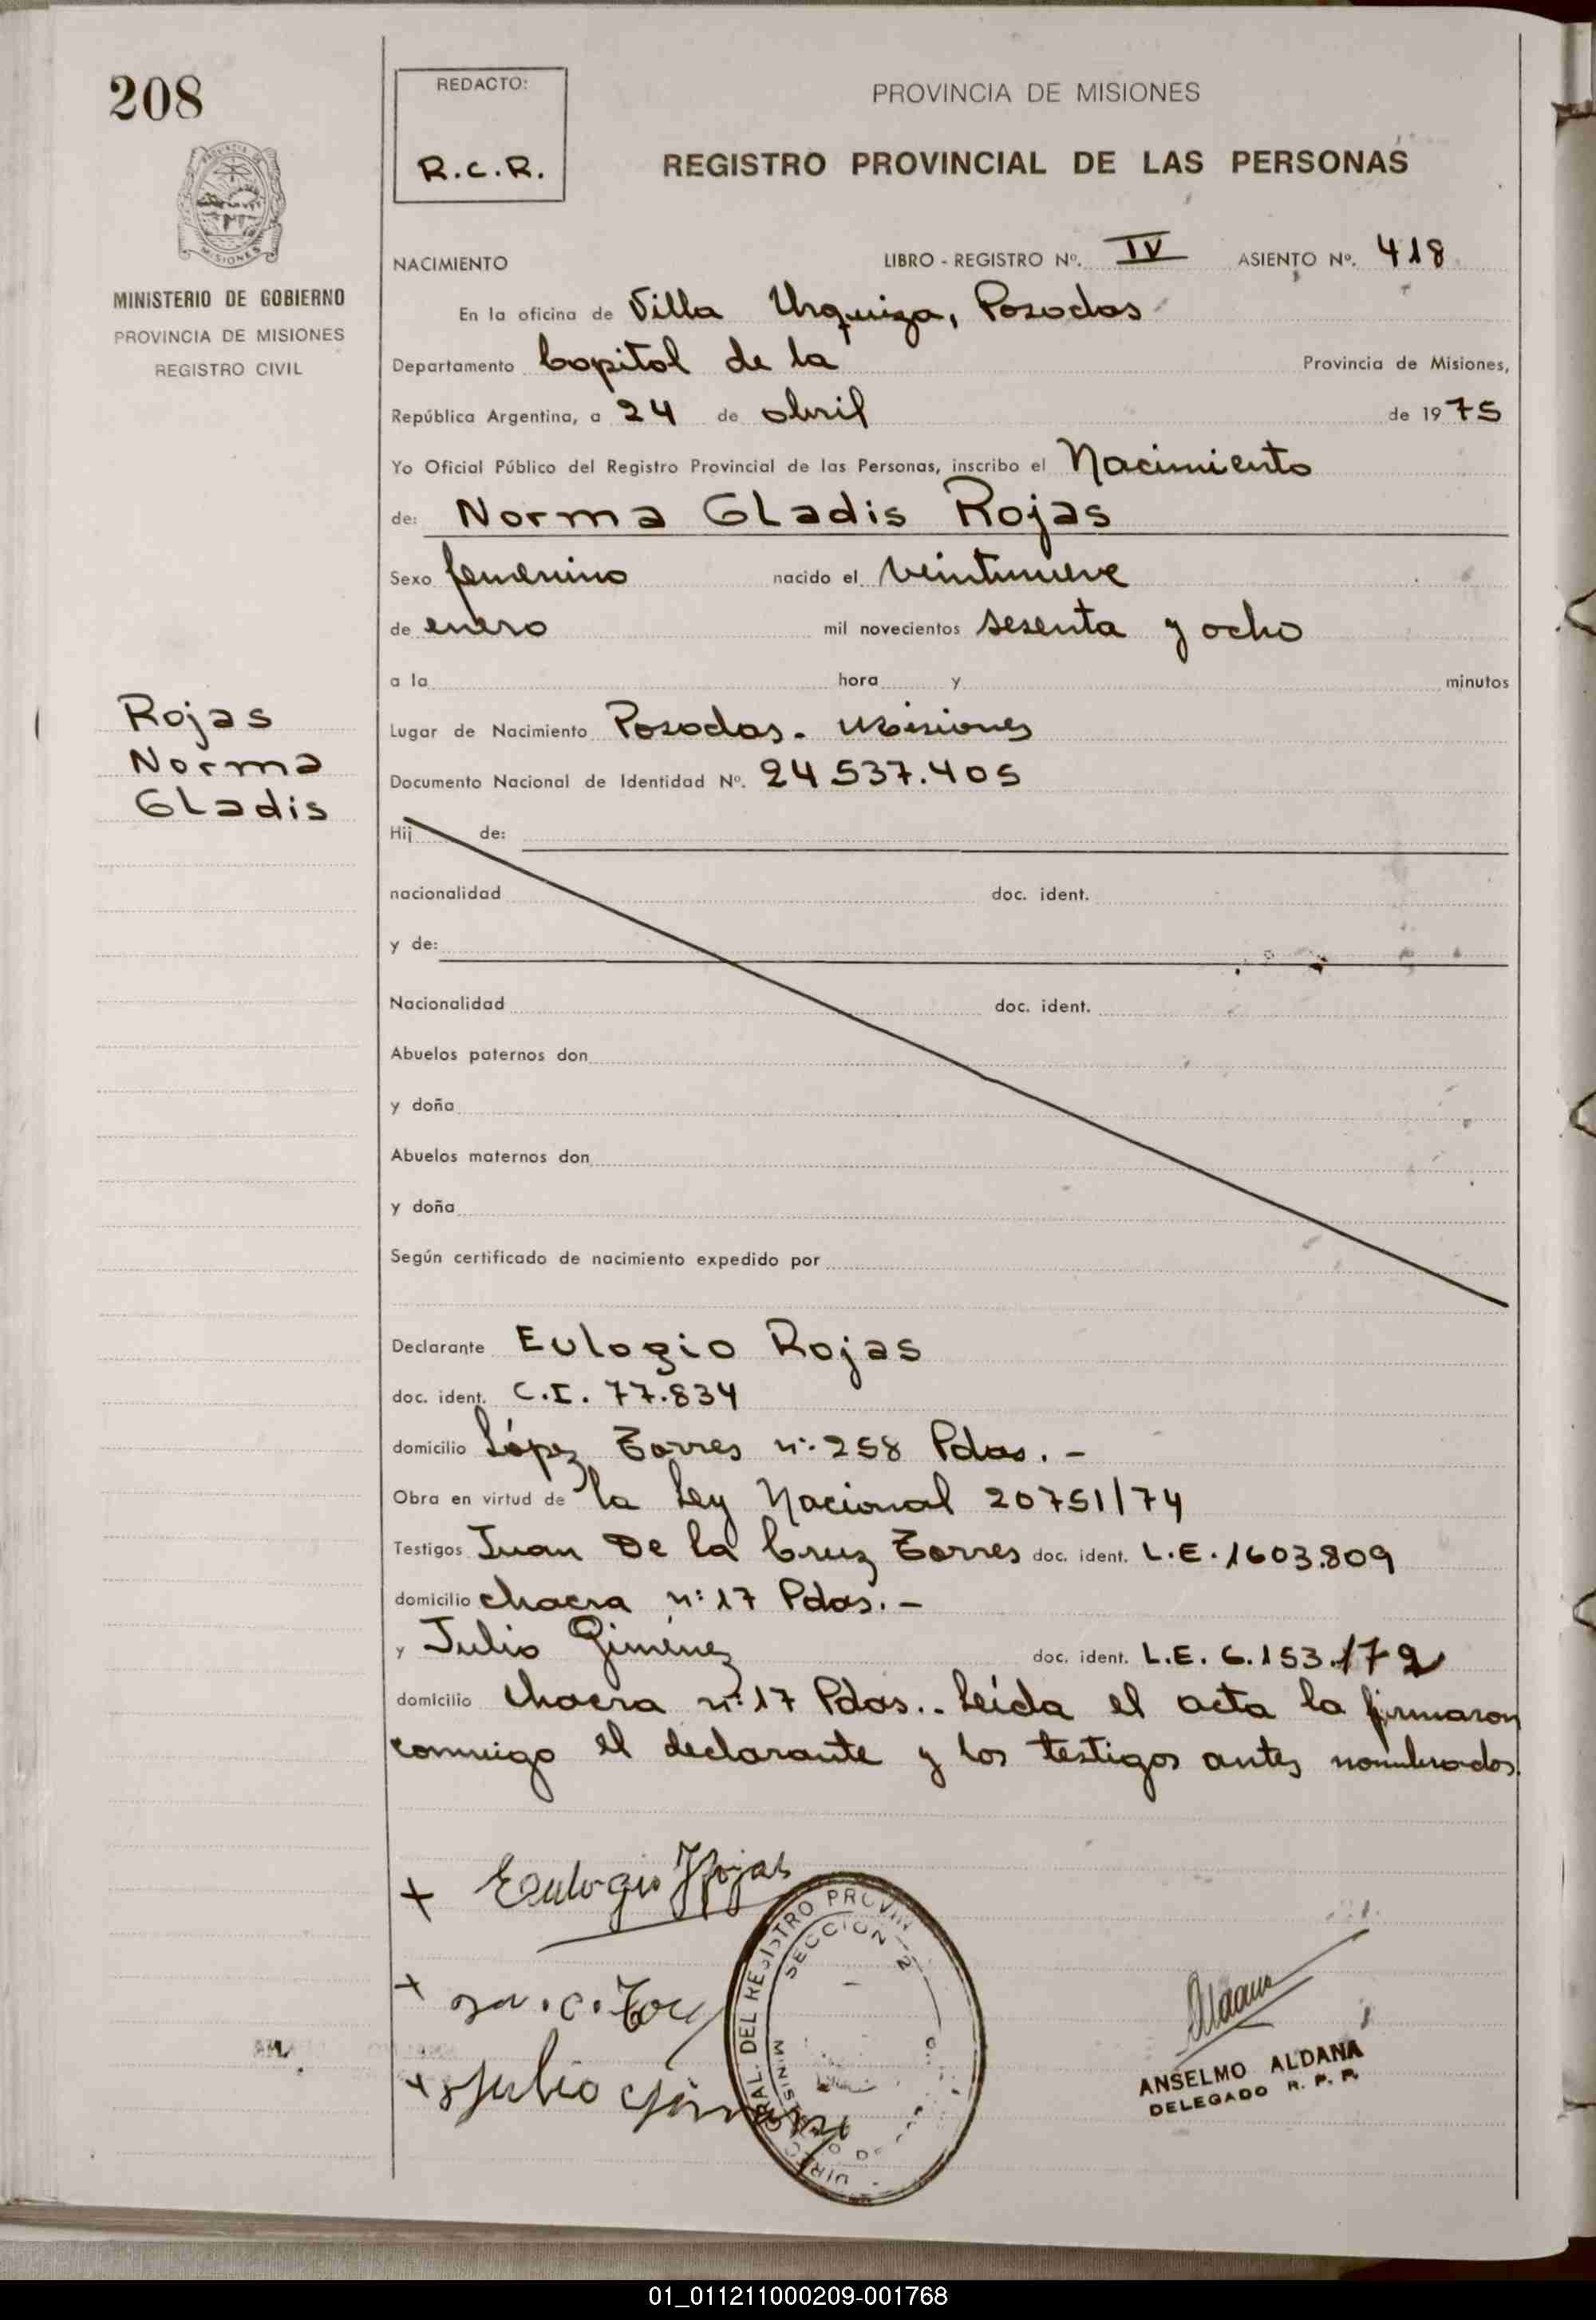 208
PROVINCIA DE
MISIONES
MINISTERIO DE GOBIERNO
PROVINCIA DE MISIONES
REGISTRO CIVIL
REDACTO:
R.C.R.
PROVINCIA DE MISIONES
REGISTRO PROVINCIAL DE LAS PERSONAS
NACIMIENTO LIBRO - REGISTRO Nº. IV ASIENTO Nº. 418
En la oficina de Villa Urquiza, Posadas
Departamento Capital de la Provincia de Misiones,
República Argentina, a 24 de abril de 1975
Yo Oficial Público del Registro Provincial de las Personas, inscribo el Nacimiento
de: Norma Gladis Rojas
Sexo femenino nacido el veintinueve
de enero mil novecientos sesenta y ocho
a la hora y minutos
Rojas
Norma
Gladis
Lugar de Nacimiento Posadas. Misiones
Documento Nacional de Identidad Nº. 24537.405
Hij de:
nacionalidad doc. ident.
y de:
Nacionalidad doc. ident.
Abuelos paternos don
y doña
Abuelos maternos don
y doña
Según certificado de nacimiento expedido por
Declarante Eulogio Rojas
doc. ident. C.I. 77.834
domicilio López Torres nº: 258 Pdas. -
Obra en virtud de la Ley Nacional 20751/74
Testigos Juan De la Cruz Torres doc. ident. L.E. 1603.809
domicilio chacra nº: 17 Pdas. -
y Julio Giménez doc. ident. L.E. 6.153.172
domicilio Chacra nº: 17 Pdas.. Leída el acta la firmaron
conmigo el declarante y los testigos antes nombrados.
+ Eulogio Rojas
+
+ Julio
GRAL. DEL REGISTRO PROVIN
SECCION 2
Aldana
ANSELMO ALDANA
DELEGADO R. P. P.
01_011211000209-001768